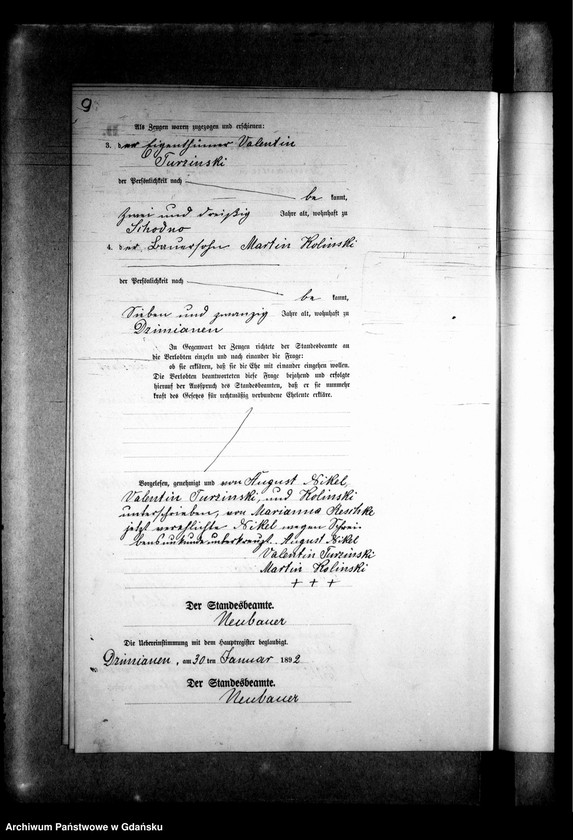 9
Als Zeugen waren zugezogen und erschienen:
3. der Eigenthümer Valentin
Turzinski
der Persönlichkeit nach
be kannt,
zwei und dreißig Jahre alt, wohnhaft zu
4. der Bauersohn Martin Kolinski
der Persönlichkeit nach
be kannt,
Sieben und zwanzig Jahre alt, wohnhaft zu
Dzimianen
In Gegenwart der Zeugen richtete der Standesbeamte an
die Verlobten einzeln und nach einander die Frage:
ob sie erklären, daß sie die Ehe mit einander eingehen wollen.
Die Verlobten beantworteten diese Frage bejahend und erfolgte
hierauf der Ausspruch des Standesbeamten, daß er sie nunmehr
kraft des Gesetzes für rechtmäßig verbundene Eheleute erkläre.
Vorgelesen, genehmigt und von August Nikel,
Valentin Turzinski, und Kolinski
unterschrieben, von Marianna
jetzt verehlichte Nikel wegen Schrei-
bensunkunde unterkreuzt. August Nikel
Valentin Turzinski
Martin Kolinski
+ + +
Der Standesbeamte.
Neubauer
Die Uebereinstimmung mit dem Hauptregister beglaubigt.
Dzimianen, am 30 ten Januar 1892
Der Standesbeamte.
Neubauer
Archiwum Państwowe w Gdańsku